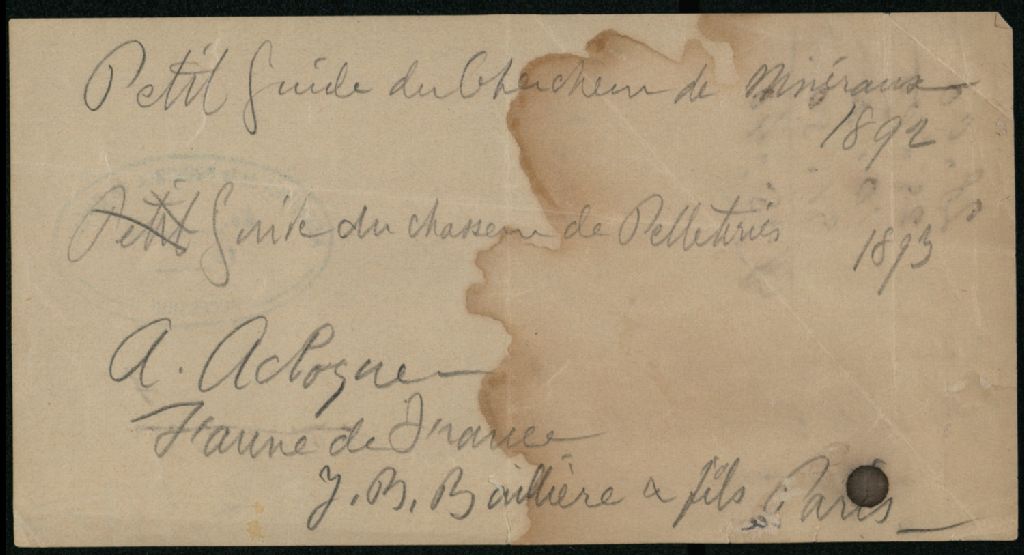 Petit Guide du Chercheur de Minéraux
1892
Petit Guide du chasseur de Pelleteries
1893
A. Acloque
Faune de France
J. B. Baillière & fils Paris